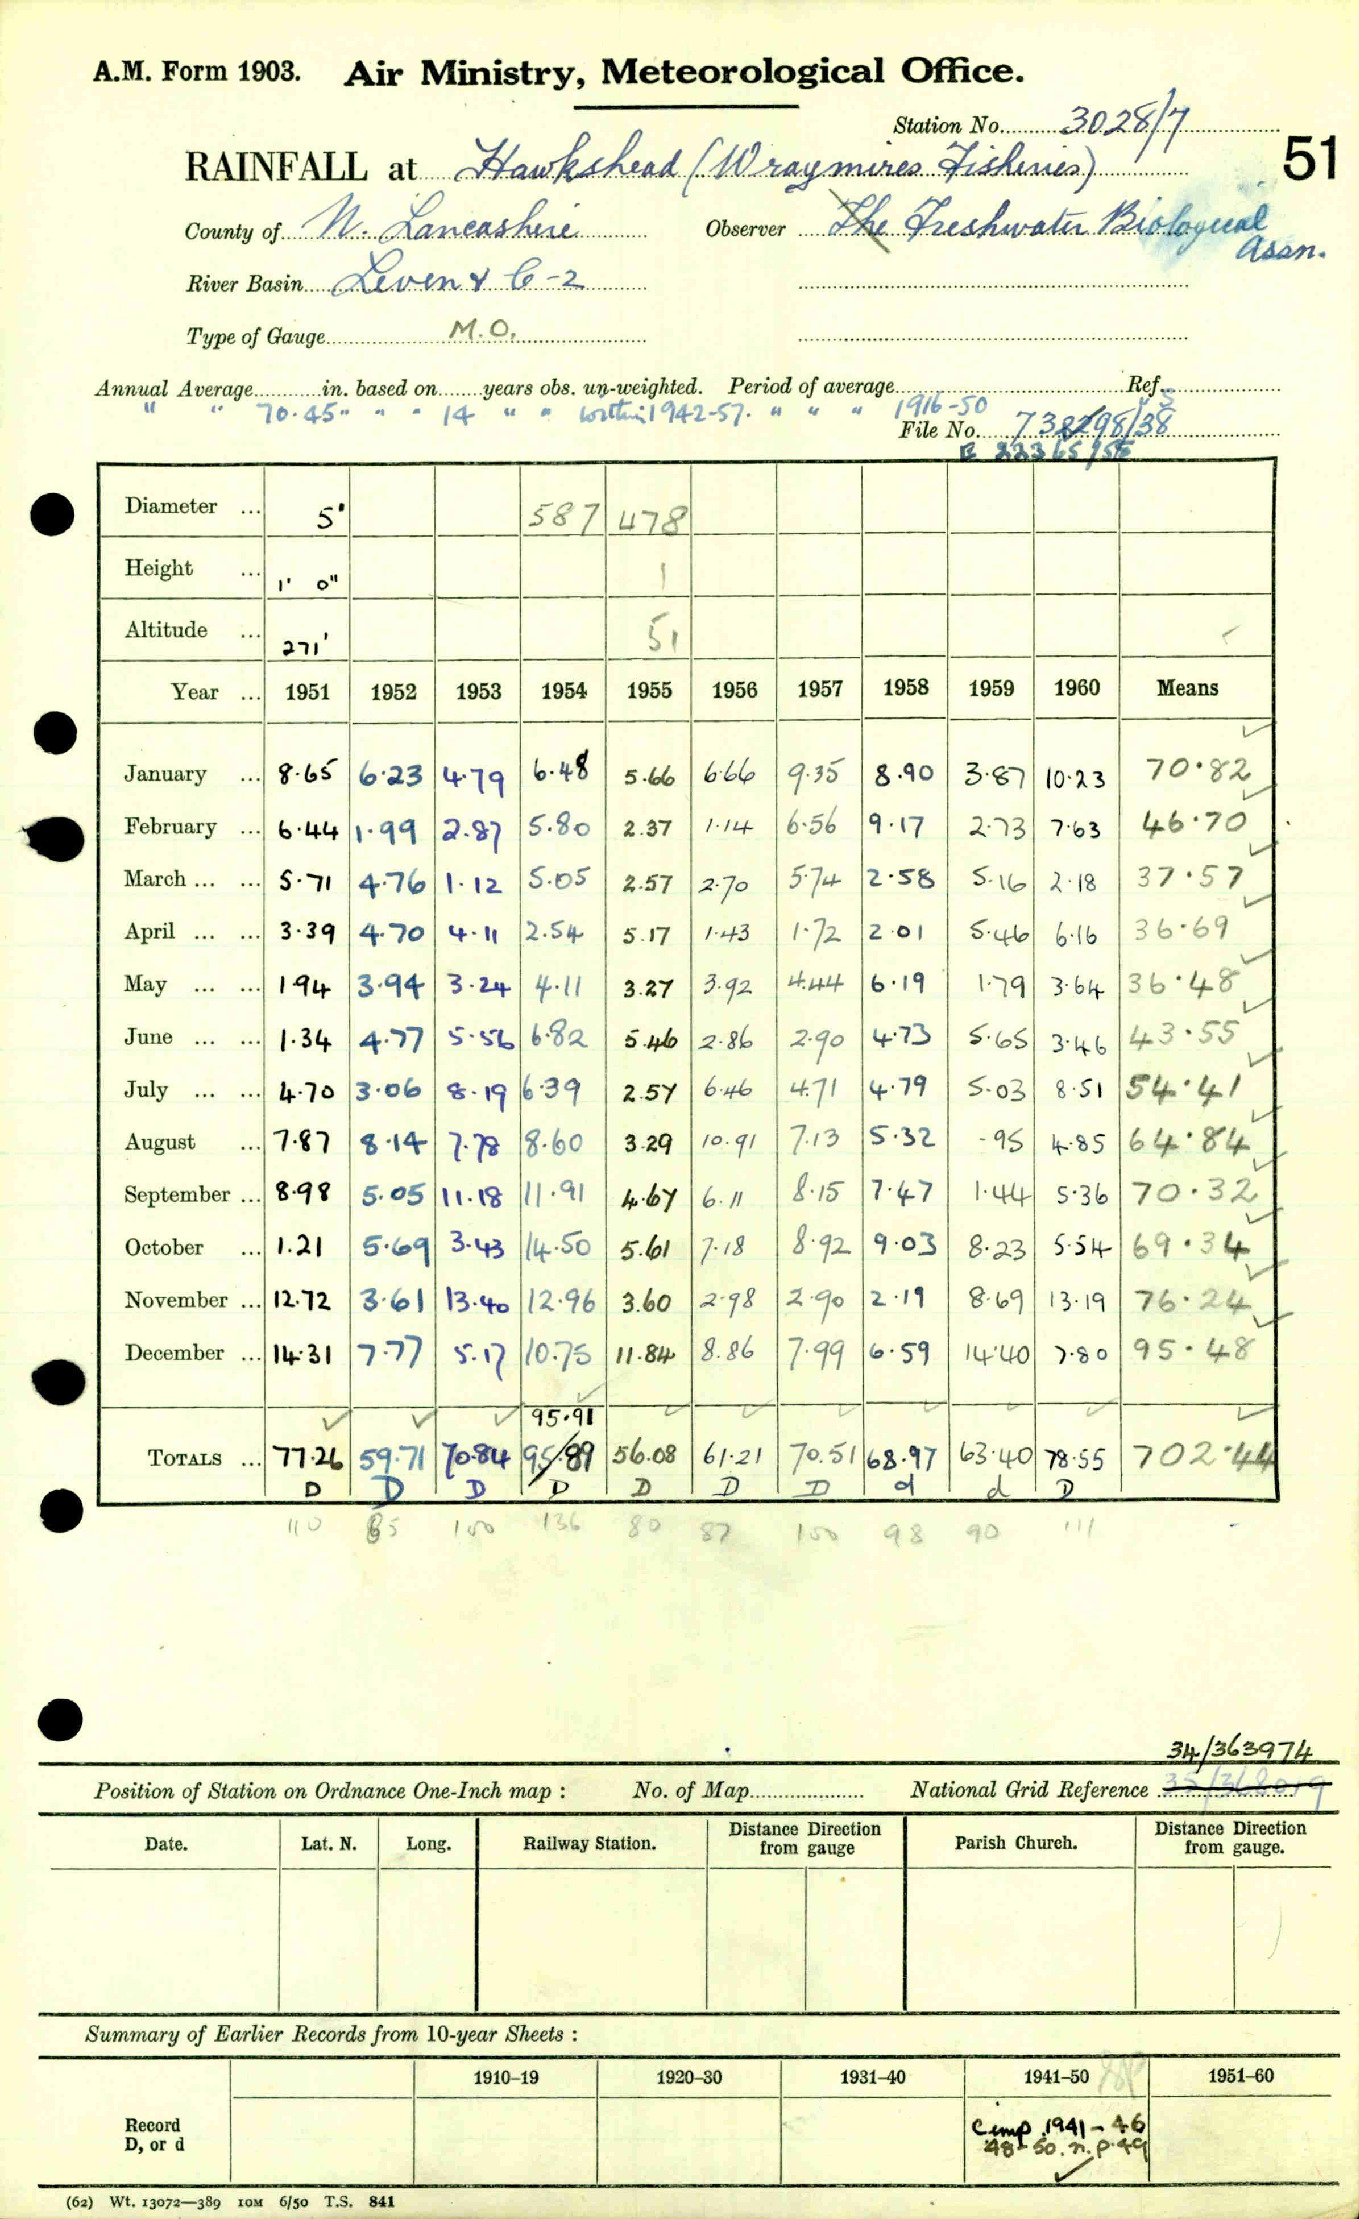 A.M. Form 1903. Air Ministry, Meteorological Office.
Station No. 3028/7
51
RAINFALL at Hawkshead (Wraymires Fisheries)
County of N. Lancashire Observer The Freshwater Biological Assn.
River Basin Leven & C-2
Type of Gauge M.O.
Annual Average in. based on years obs. un-weighted. Period of average Ref.
" " 70.45" " " 14 " " within 1942-57. " " " 1916-50
File No.
Diameter ... 5" 587 478
Height ... 1' 0" 1
Altitude ... 271' 51
Year ... 1951 1952 1953 1954 1955 1956 1957 1958 1959 1960 Means
January ... 8.65 6.23 4.79 6.48 5.66 6.66 9.35 8.90 3.87 10.23 70.82
February ... 6.44 1.99 2.87 5.80 2.37 1.14 6.56 9.17 2.73 7.63 46.70
March ... ... 5.71 4.76 1.12 5.05 2.57 2.70 5.74 2.58 5.16 2.18 37.57
April ... ... 3.39 4.70 4.11 2.54 5.17 1.43 1.72 2.01 5.46 6.16 36.69
May ... ... 1.94 3.94 3.24 4.11 3.27 3.92 4.44 6.19 1.79 3.64 36.48
June ... ... 1.34 4.77 5.56 6.82 5.46 2.86 2.90 4.73 5.65 3.46 43.55
July ... ... 4.70 3.06 8.19 6.39 2.57 6.46 4.71 4.79 5.03 8.51 54.41
August ... 7.87 8.14 7.78 8.60 3.29 10.91 7.13 5.32 .95 4.85 64.84
September ... 8.98 5.05 11.18 11.91 4.67 6.11 8.15 7.47 1.44 5.36 70.32
October ... 1.21 5.69 3.43 14.50 5.61 7.18 8.92 9.03 8.23 5.54 69.34
November ... 12.72 3.61 13.40 12.96 3.60 2.98 2.90 2.19 8.69 13.19 76.24
December ... 14.31 7.77 5.17 10.75 11.84 8.86 7.99 6.59 14.40 7.80 95.48
95.91
TOTALS ... 77.26 59.71 70.84 95.89 56.08 61.21 70.51 68.97 63.40 78.55 702.44
D D D D D D D d d D
110 85 100 136 80 87 100 98 90 111
34/363974
Position of Station on Ordnance One-Inch map : No. of Map National Grid Reference 35/368019
Date. Lat. N. Long. Railway Station. Distance from gauge Direction Parish Church. Distance from gauge. Direction
Summary of Earlier Records from 10-year Sheets :
1910-19 1920-30 1931-40 1941-50 1951-60
Record D, or d
Comp 1941-46
48-50. n.p. 49
(62) Wt. 13072—389 10M 6/50 T.S. 841